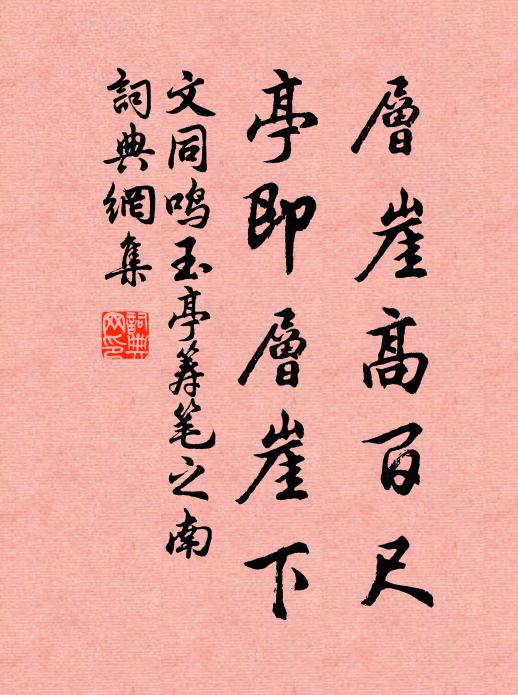 層崖高百尺
亭即層崖下
文同鸣玉亭筹笔之南
詞典網集
詞典網印